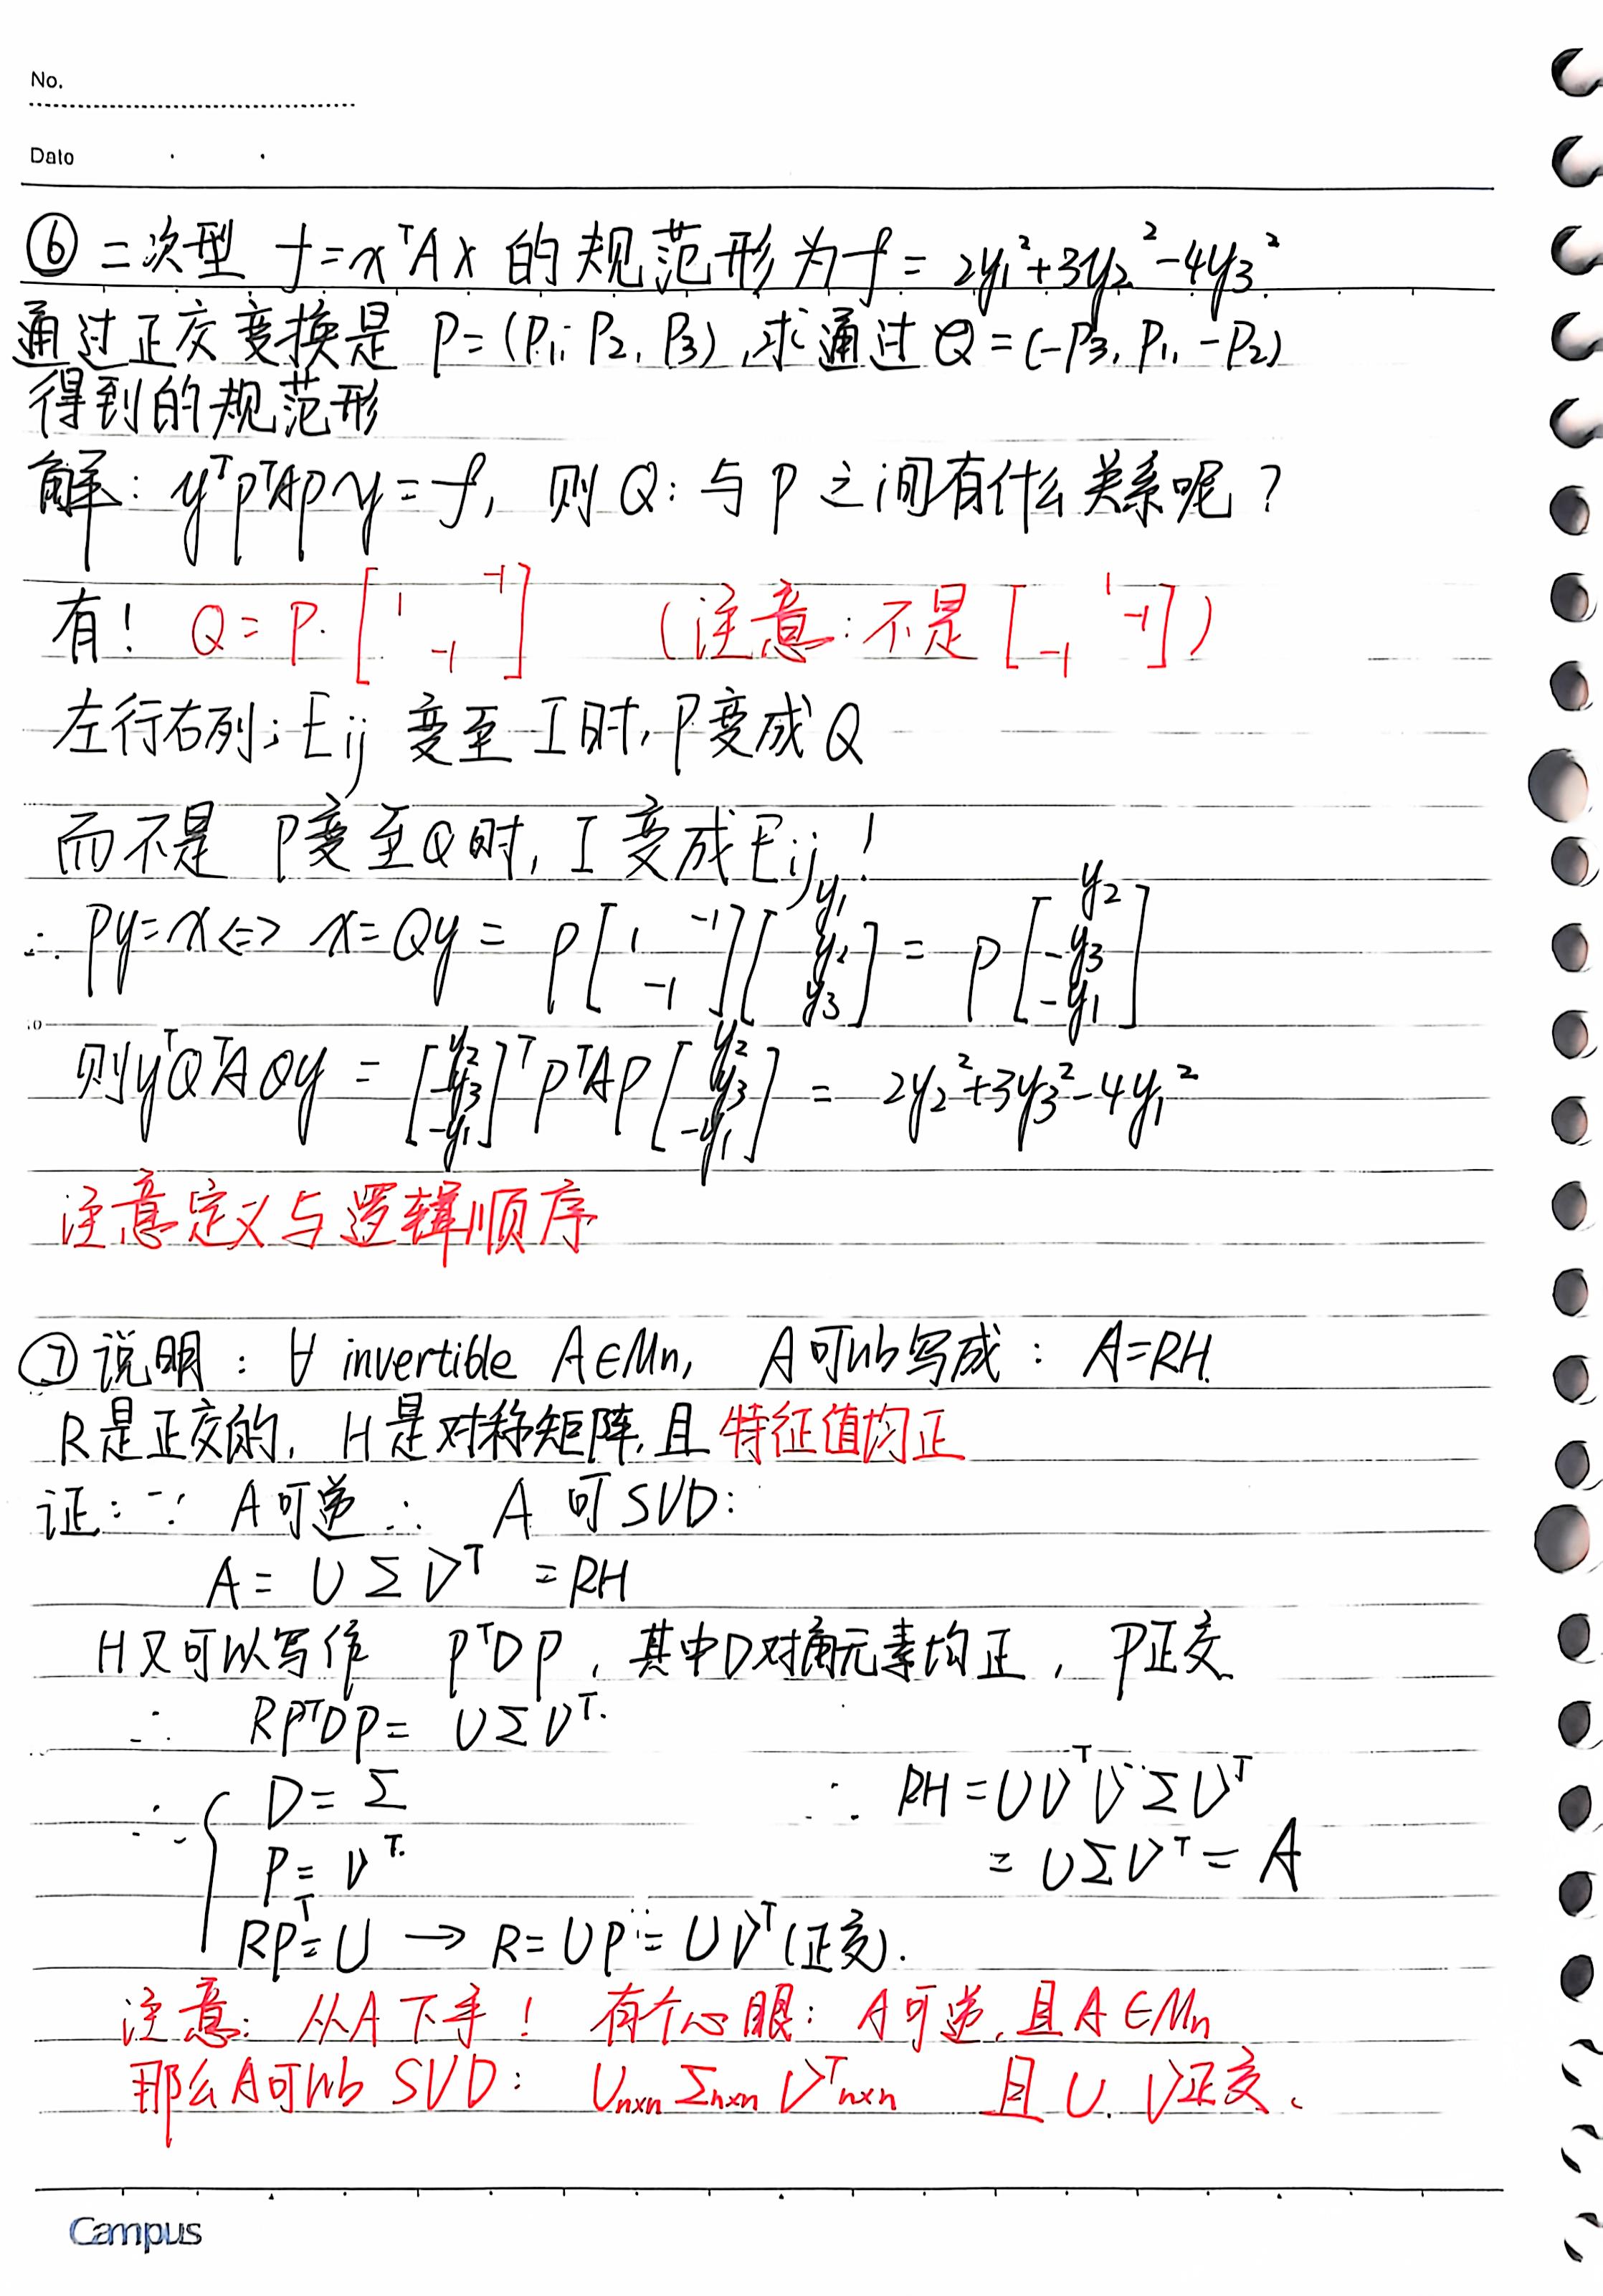 No.
Date
⑥ 二次型 f=xᵀAx 的规范形为f= 2y₁²+3y₂²-4y₃²
通过正交变换是 P=(P₁, P₂, P₃),求通过Q=(-P₃, P₁, -P₂)
得到的规范形
解: yᵀPᵀAPy=f, 则Q:与P之间有什么关系呢?
有! Q=P·[ 1 -1 -1 ] (注意:不是[ 1 -1 -1 ])
左行右列; Eij 变至 I时, P变成Q
而不是 P变至Q时, I变成Eij!
∴ Py=x⇔ x=Qy = P[ 1 -1 -1 ][ y₁ y₂ y₃ ] = P[ y₂ -y₃ -y₁ ]
则yᵀQᵀAQy = [ y₂ -y₃ -y₁ ]ᵀPᵀAP[ y₂ -y₃ -y₁ ] = 2y₂²+3y₃²-4y₁²
注意定义与逻辑顺序
⑦说明: ∀ invertible A∈Mn, A可以写成: A=RH.
R是正交的, H是对称矩阵,且特征值均正
证: ∵ A可逆 ∴ A 可SVD:
A= UΣVᵀ =RH
H又可以写作 PᵀDP, 其中D对角元素均正, P正交
∴ RPᵀDP= UΣVᵀ.
∴ { D=Σ
∴ RH=UVᵀVΣVᵀ
P=Vᵀ
=UΣVᵀ=A
RPᵀ=U → R=UP=UVᵀ(正交).
注意: 从A下手! 有个心眼: A可逆,且A∈Mn
那么A可以 SVD: Uₙₓₙ Σₙₓₙ Vᵀₙₓₙ 且U, V正交.
Campus